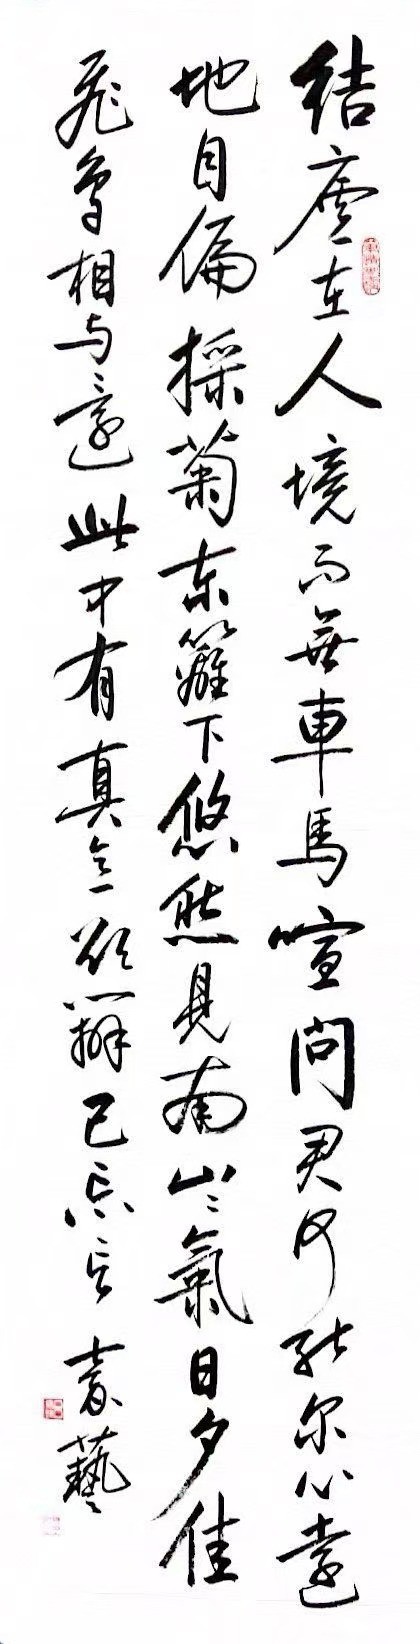 結廬在人境而無車馬喧問君何能尔心遠
地自偏採菊東籬下悠然見南山〻氣日夕佳
飛鳥相与還此中有真意欲辨已忘言 袁藝